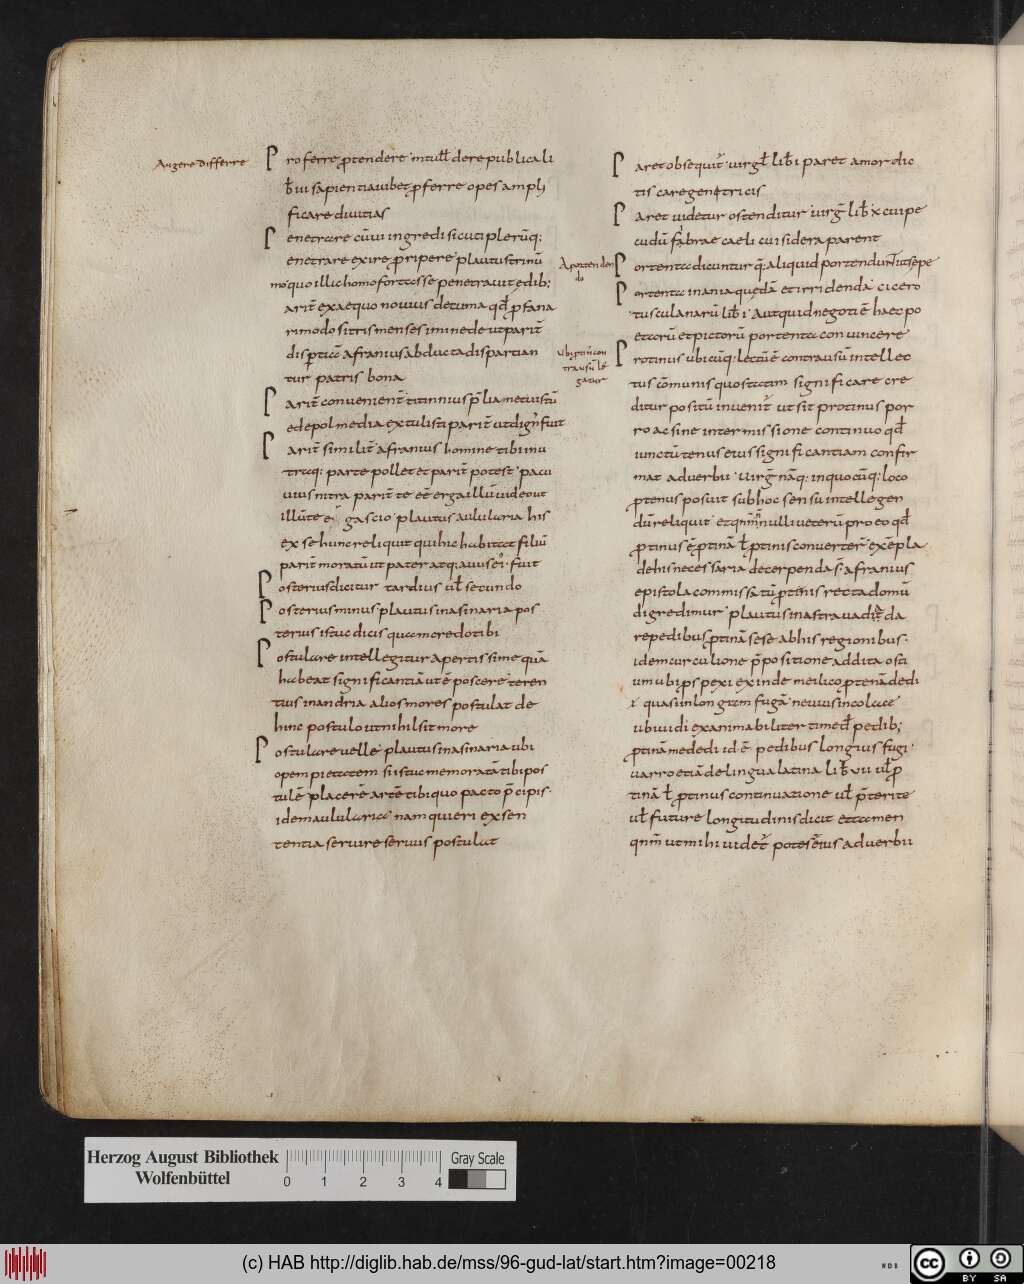 Augere differre
Proferre p̄tendere mtull̄ de re publica li
b̄ vi sapientia iubet p̄ferre opes ampli
ficare divitias
Penetrare cū vi ingredi sicuti plerūq;
enetrare exire p̄ripere plautus trinū
mo quo illic homo foras se penetravit ędib;
arit̄ ex aequo novius decuma qd̄ p̄fana
ri modo si tris menses iminede ut parit̄
dis p̄ticā afranius abducta dispartian
tur patris bona
Parit̄ convenient̄ titinnius p̄lia metuistū
edepol media extulisti parit̄ ut dign̄ fuit
Parit̄ similit̄ afranius homine tibi inu
traq; parte pollet et parit̄ potest pacu
vius nitra parit̄ te eē erga illū videout
illūte ei gascio plautus aulularia his
ex se hunc reliquit qui hic habitat filiū
parit̄ moratū ut pater atq; avus ei° fuit
Posterius dicitur tardius vl̄ secundo
Posterius minus plautus in asinaria pos
terius istuc dicis quam credo tibi
Postulare intellegitur apertissime quā
habeat significantiā ut ē poscere teren
tius in andria alios mores postulat de
hinc postulo ut nihil sit more
Postulare velle plautus in asinaria ubi
opem pietatem si istuc memoratā tibi pos
tulē placerē artē tibi quo pacto p̄cipis
idem aulularia nam qui eri ex sen
tentia servire servus postulat
Paret obsequit̄ virgł lib̄ i paret amor dic
tis care genetricis
Paret videtur ostenditur virḡ lib̄ x cui pe
cudū fibrae caeli cui sidera parent
A portenden
do
Portenta dicuntur q̄ aliquid portendunt ut sępe
Portenta inania quędā et irridenda cicero
tusculanarū lib̄ i Aut quid negotī ē haec po
etarū et pictorū portenta convincere
Ubi ptin̄ con
tra usū le
gatur
Protinus ubicūq; lectū ē contra usū intellec
tus cōmunis quos tatim significare cre
ditur positū invenit̄ ut sit protinus por
ro ac sine intermissione continuo qd̄
iunctū tenus eius significantiam confir
mat adverbii virḡ nāq; inquocūq; loco
p̄tenus posuit sub hoc sensu intellegen
dū reliquit et qm̄ nulli veterū pro eo qd̄
p̄tinus ē p̄tinā ł p̄tinis converter̄ exēpla
de his necessaria decerpenda s̄ afranius
epistola commissatū p̄tinis recta domū
digredimur plautus in astrava dit̄ da
re pedibus p̄tinā sese ab his regionibus
idem curculione p̄positione addita osti
um ubi p̄spexi exinde me ilico p̄tenā dedi
i quasi in longam fugā nevius in colace
ubi vidi exanimabiliter timed̄ pedib;
p̄tinā me dedi id ē pedibus longius fugi
varro etiā de lingua latina lib̄ vii vl̄ p̄
tinā ł p̄tinus continuatione vl̄ p̄terite
vl̄ future longitudinis dicit et tamen
qnm̄ ut mihi videt̄ potest̄ eius adverbii
Herzog August Bibliothek
Wolfenbüttel
0 1 2 3 4
Gray Scale
(c) HAB http://diglib.hab.de/mss/96-gud-lat/start.htm?image=00218
WDB
cc BY SA